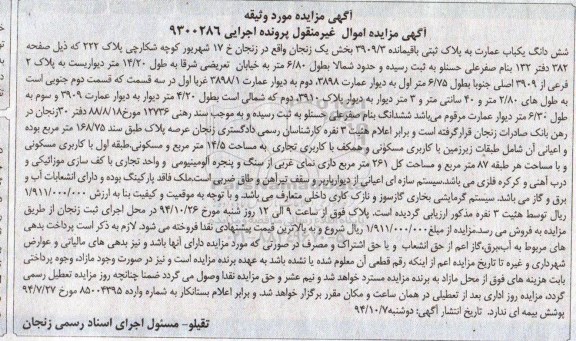 آگهی مزایده مورد وثیقه
آگهی مزایده اموال غیرمنقول پرونده اجرایی ۹۳۰۰۲۸۶
شش دانگ یکباب عمارت به پلاک ثبتی باقیمانده ۳۹۰۹/۳ بخش یک زنجان واقع در زنجان خ ۱۷ شهریور کوچه شکارچی پلاک ۲۲۲ که ذیل صفحه
۳۸۲ دفتر ۱۳۲ بنام صفرعلی حسنلو به ثبت رسیده و حدود شمالا بطول ۶/۸۰ متر به خیابان تعریضی شرقا به طول ۱۴/۲۰ متر دیواریست به پلاک ۲
فرعی از ۳۹۰۹ اصلی جنوبا بطول ۶/۷۵ متر اول به دیوار عمارت ۳۸۹۸، دوم به دیوار عمارت ۳۸۹۸/۱ غربا اول در سه قسمت که قسمت دوم جنوبی است
به طول های ۲/۸۰ متر و ۴۰ سانتی متر و ۳ متر دیوار به دیوار پلاک ۳۹۱۰، دوم که شمالی است بطول ۴/۲۰ متر دیوار به دیوار عمارت ۳۹۰۹ و سوم به
طول ۶/۳۰ متر دیوار عمارت مرقوم می‌باشد ششدانگ بنام صفرعلی حسنلو به ثبت رسیده و به موجب سند رهنی ۱۲۷۳۶ مورخ ۸۸/۸/۱۸ دفتر ۳۰ زنجان در
رهن بانک صادرات زنجان قرار گرفته است و برابر اعلام هیئت ۳ نفره کارشناسان رسمی دادگستری زنجان عرصه پلاک طبق سند ۱۶۸/۷۵ متر مربع بوده
و اعیانی آن شامل طبقات زیرزمین با کاربری مسکونی و همکف با کاربری تجاری به مساحت ۱۴/۵ متر مربع و مسکونی، طبقه اول با کاربری مسکونی
و با مساحت هر طبقه ۸۷ متر مربع و مساحت کل ۲۶۱ متر مربع داری نمای غربی از سنگ و پنجره آلومینیومی و واحد تجاری با کف سازی موزائیکی و
درب آهنی و کرکره فلزی می باشد. سیستم سازه ای اعیانی از دیوار باربر و سقف تیرآهن و طاق ضربی است، ملک فاقد پارکینگ بوده و دارای انشعابات آب و
برق و گاز می باشد. سیستم گرمایشی بخاری گازسوز و نازک کاری داخلی متعارف می باشد. و با توجه به موقعیت و کیفیت بنا به ارزش ۱/۹۱۱/۰۰۰/۰۰۰
ریال توسط هئیت ۳ نفره مذکور ارزیابی گردیده است. پلاک فوق از ساعت ۹ الی ۱۲ روز شنبه مورخ ۹۴/۱۰/۲۶ در محل اجرای ثبت زنجان از طریق
مزایده به فروش می رسد. مزایده از مبلغ ۱/۹۱۱/۰۰۰/۰۰۰ ریال شروع و به بالاترین قیمت پیشنهادی نقدا فروخته می شود. لازم به ذکر است پرداخت بدهی
های مربوط به آب، برق، گاز اعم از حق انشعاب و یا حق اشتراک و مصرف در صورتی که مورد مزایده دارای آنها باشد و نیز بدهی های مالیاتی و عوارض
شهرداری و غیره تا تاریخ مزایده اعم از اینکه رقم قطعی آن معلوم شده یا نشده باشد به عهده برنده مزایده است و نیز در صورت وجود مازاد، وجوه پرداختی
بابت هزینه های فوق از محل مازاد به برنده مزایده مسترد خواهد شد و نیم عشر و حق مزایده نقدا وصول می گردد ضمنا چنانچه روز مزایده تعطیل رسمی
گردد، مزایده روز اداری بعد از تعطیلی در همان ساعت و مکان مقرر برگزار خواهد شد. و برابر اعلام بستانکار به شماره وارده ۸۵۰۰۴۳۹۵ مورخ ۹۴/۷/۲۷
پوشش بیمه ای ندارد. تاریخ انتشار آگهی: دوشنبه ۹۴/۱۰/۷
تقیلو - مسئول اجرای اسناد رسمی زنجان